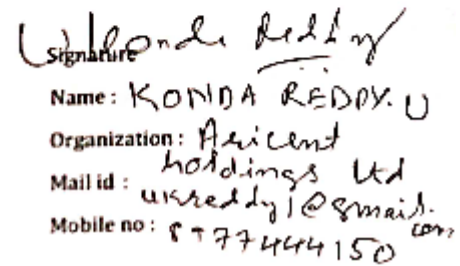 U Konda Reddy
Signature
Name : KONDA REDDY. U
Organization : Aricent
holdings Ltd
Mail id : ukreddy1@gmail.
com
Mobile no : 8777444150